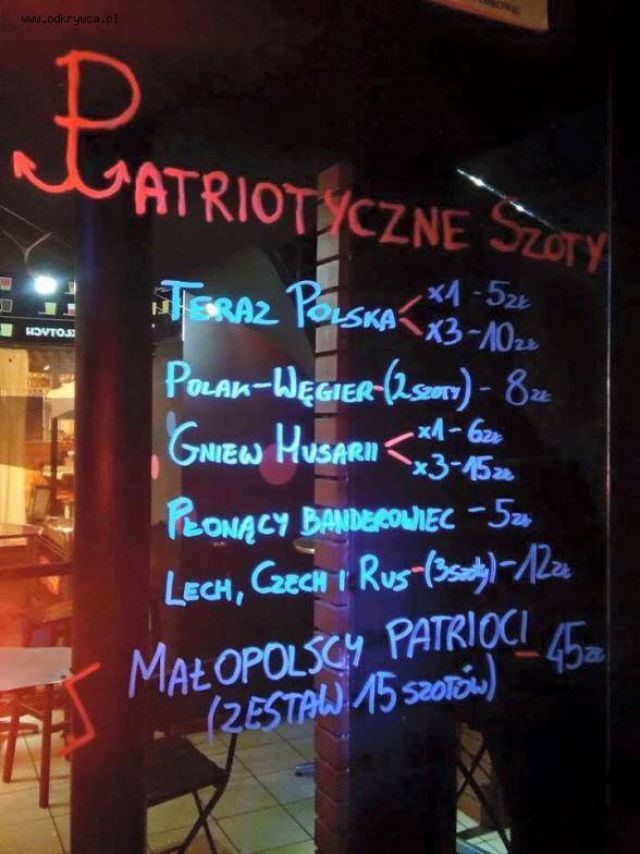 www.odkrywca.pl
PATRIOTYCZNE SZOTY
TERAZ POLSKA < x1 - 5zł
x3 - 10zł
POLAK-WĘGIER-(2 SZOTY) - 8zł
GNIEW HUSARII < x1 - 6zł
x3 - 15zł
PŁONĄCY BANDEROWIEC - 5zł
LECH, CZECH I RUS - (3 szoty) - 12zł
MAŁOPOLSCY PATRIOCI - 45zł
(ZESTAW 15 SZOTÓW)